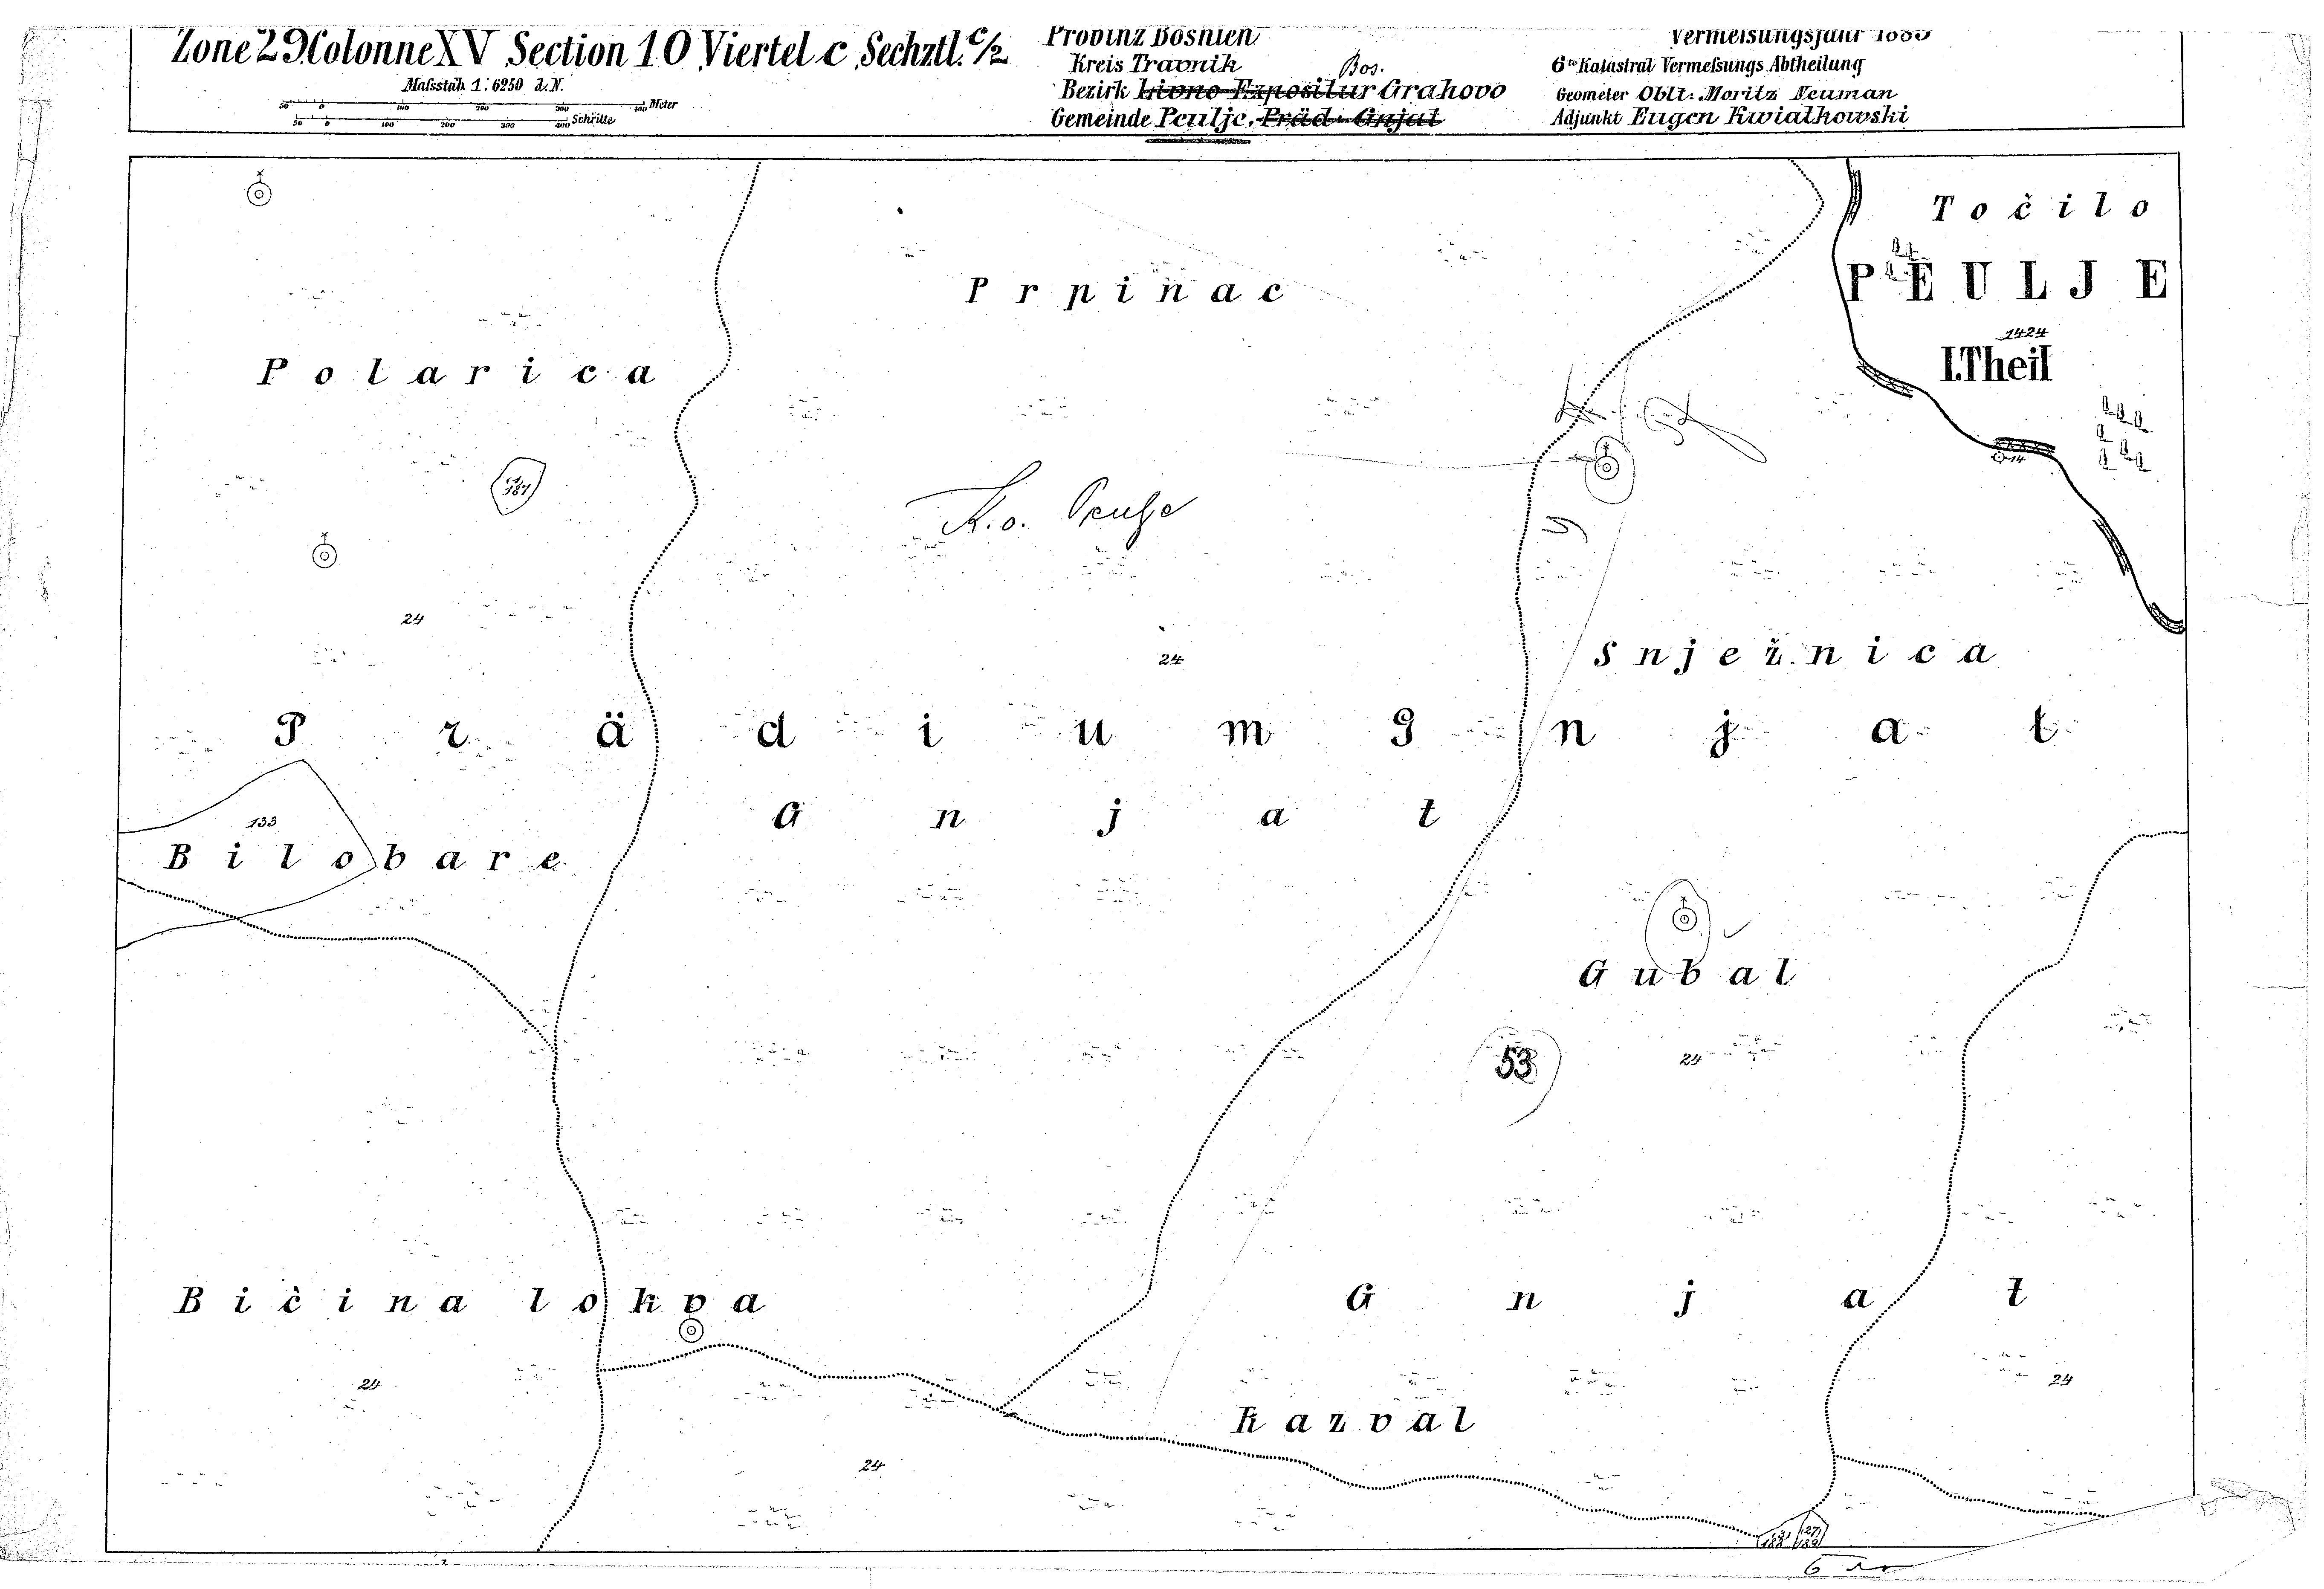 Zone 29 Colonne XV Section 10 Viertel c Sechztl. c/2
Masstab 1:6250 d.N.
50 0 100 200 300 400 Meter
50 0 100 200 300 400 Schritte
Provinz Bosnien
Kreis Travnik
Bos.
Bezirk Livno Expositur Grahovo
Gemeinde Peulje, Präd: Gnjat
Vermessungsjahr
6te Katastral Vermessungs Abtheilung
Geometer Oblt: Moritz Neuman
Adjunkt Eugen Kwiatkowski
Točilo
PEULJE
1424
I. Theil
Prpinac
Polarica
K.o. Peulje
14
24
24
Snježnica
Prädium Gnjat
Gnjat
133
Bilobare
Gubal
53
24
Bičina lokva
Gnjat
24
24
Kazval
24